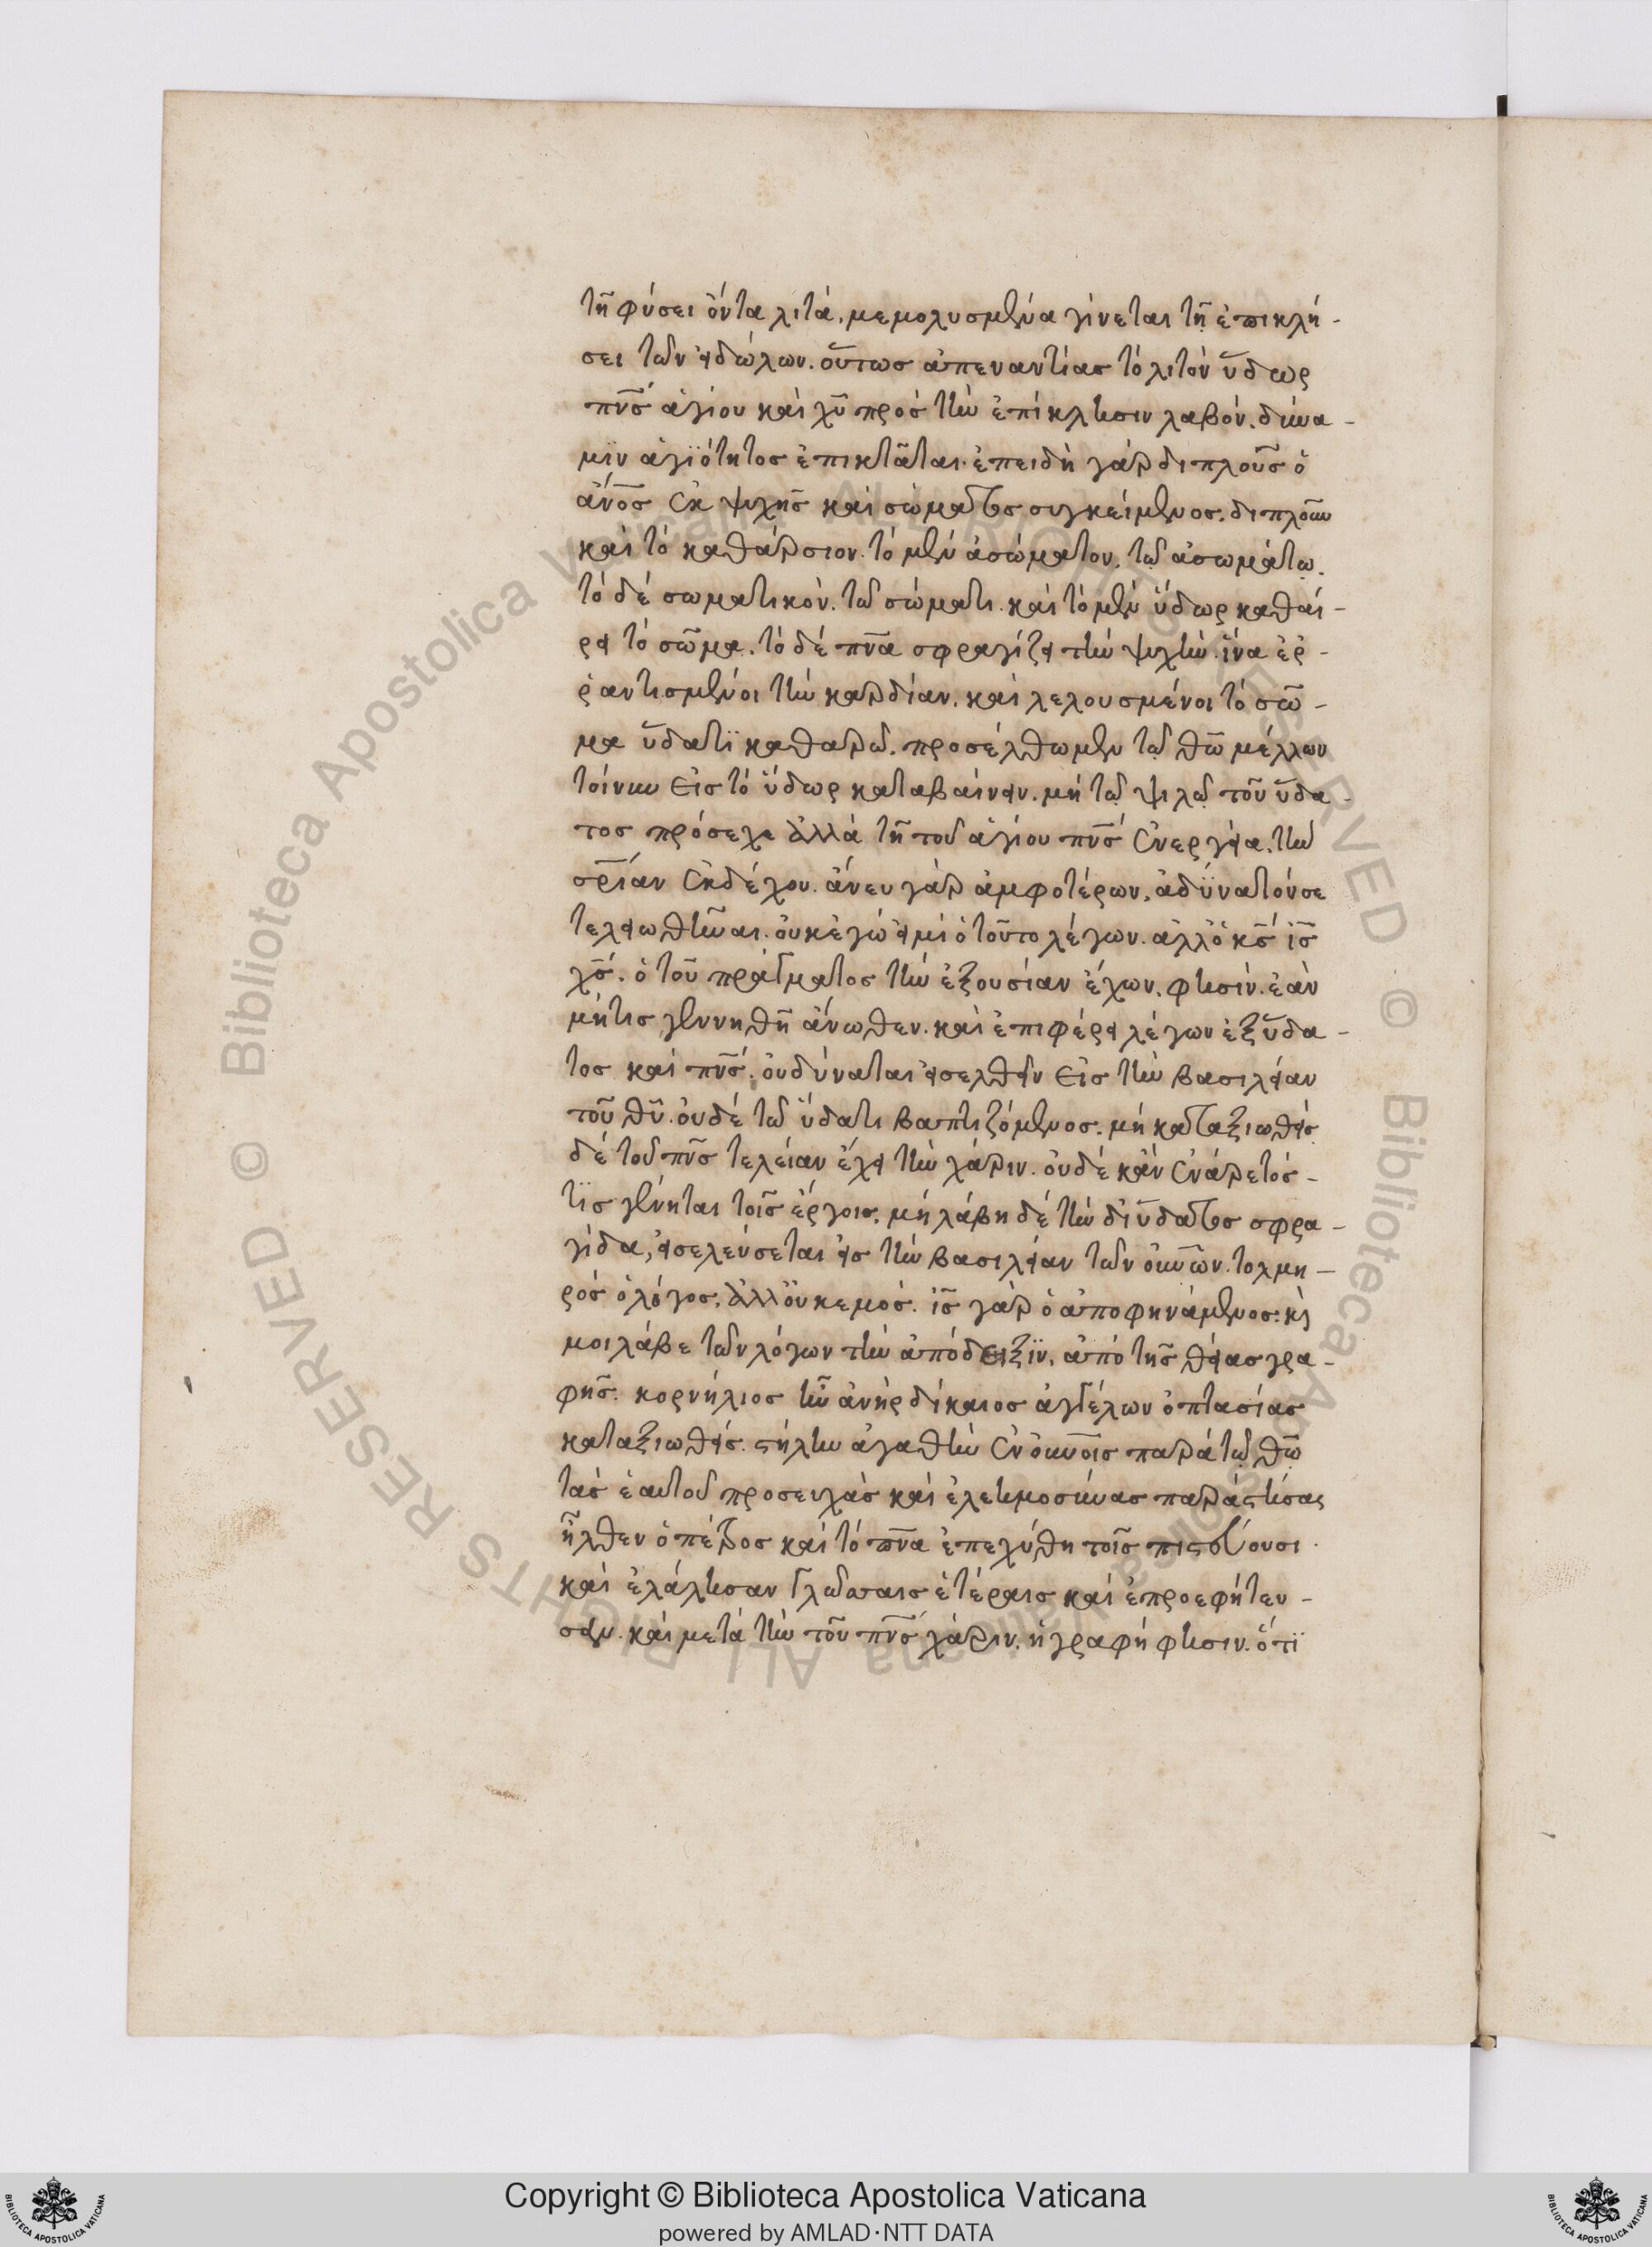 τῇ φύσει ὄντα λιτά. μεμολυσμένα γίνεται τῇ ἐπικλή-
σει τῶν εἰδώλων. οὕτως ἀπεναντίας τὸ λιτὸν ὕδωρ
πνς ἁγίου καὶ χυ πρὸς τὴν ἐπίκλησιν λαβὸν. δύνα-
μϊν ἁγϊότητος ἐπικτᾶται. ἐπειδὴ γὰρ διπλοῦς ὁ
ἄνος ἐκ ψυχῆς καὶ σώματος συγκείμενος. διπλοῦν
καὶ τὸ καθάρσιον. τὸ μὲν ἀσώματον. τῷ ἀσωμάτῳ.
τὸ δὲ σωματικὸν. τῷ σώματι. καὶ τὸ μὲν ὕδωρ καθαί-
ρει τὸ σῶμα. τὸ δὲ πνα σφραγίζει τὴν ψυχὴν. ἵνα ἐρ-
ραντισμένοι τὴν καρδίαν. καὶ λελουσμένοι τὸ σῶ-
μα ὕδατϊ καθαρῷ. προσέλθωμεν τῷ θω μέλλων
τοίνυν εἰς τὸ ὕδωρ καταβαίνειν. μὴ τῷ ψιλῷ τοῦ ὕδα-
τος πρόσεχε ἀλλὰ τῇ τοῦ ἁγίου πνς ἐνεργείᾳ. τὴν
σρίαν ἐκδέχου. ἄνευ γὰρ ἀμφοτέρων. ἀδύνατόν σε
τελειωθῆναι. οὐκ ἐγώ εἰμι ὁ τοῦτο λέγων. ἀλλ' ὁ κς ις
χς. ὁ τοῦ πράγματος τὴν ἐξουσίαν ἔχων. φησίν. ἐὰν
μήτις γεννηθῇ ἄνωθεν. καὶ ἐπιφέρει λέγων ἐξ ὕδα-
τος καὶ πνς. οὐ δύναται εἰσελθεῖν εἰς τὴν βασιλείαν
τοῦ θυ. οὐδὲ τῷ ὕδατι βαπτιζόμενος. μὴ καταξιωθεὶς
δὲ τοῦ πνς τελείαν ἔχει τὴν χάριν. οὐδὲ κἂν ἐνάρετός-
τϊς γένηται τοῖς ἔργοις. μὴ λάβῃ δὲ τὴν δι' ὕδατος σφρα-
γίδα, εἰσελεύσεται εἰς τὴν βασιλείαν τῶν οὐνῶν. τολμη-
ρὸς ὁ λόγος. ἀλλ' οὐκ ἐμός. ις γὰρ ὁ ἀποφηνάμενος. καὶ
μοι λάβε τῶν λόγων τὴν ἀπόδειξϊν. ἀπὸ τῆς θείας γρα-
φῆς. κορνήλιος ἦν ἀνὴρ δίκαιος ἀγγέλων ὀπτασίας
καταξιωθείς. στήλην ἀγαθὴν ἐν οὐνοῖς παρὰ τῷ θω
τὰς ἑαυτοῦ προσευχὰς καὶ ἐλεημοσύνας παραστήσας
ἦλθεν ὁ πέτρος καὶ τὸ πνα ἐπεχύθη τοῖς πιστεύουσι.
καὶ ἐλάλησαν γλώσσαις ἑτέραις καὶ ἐπροεφήτευ-
σαν. καὶ μετὰ τὴν τοῦ πνς χάριν. ἡ γραφή φησιν. ὅτϊ
Copyright © Biblioteca Apostolica Vaticana
powered by AMLAD·NTT DATA
© Biblioteca Apostolica Vaticana ALL RIGHTS RESERVED
© Biblioteca Apostolica Vaticana ALL RIGHTS RESERVED
BIBLIOTECA APOSTOLICA VATICANA
BIBLIOTECA APOSTOLICA VATICANA